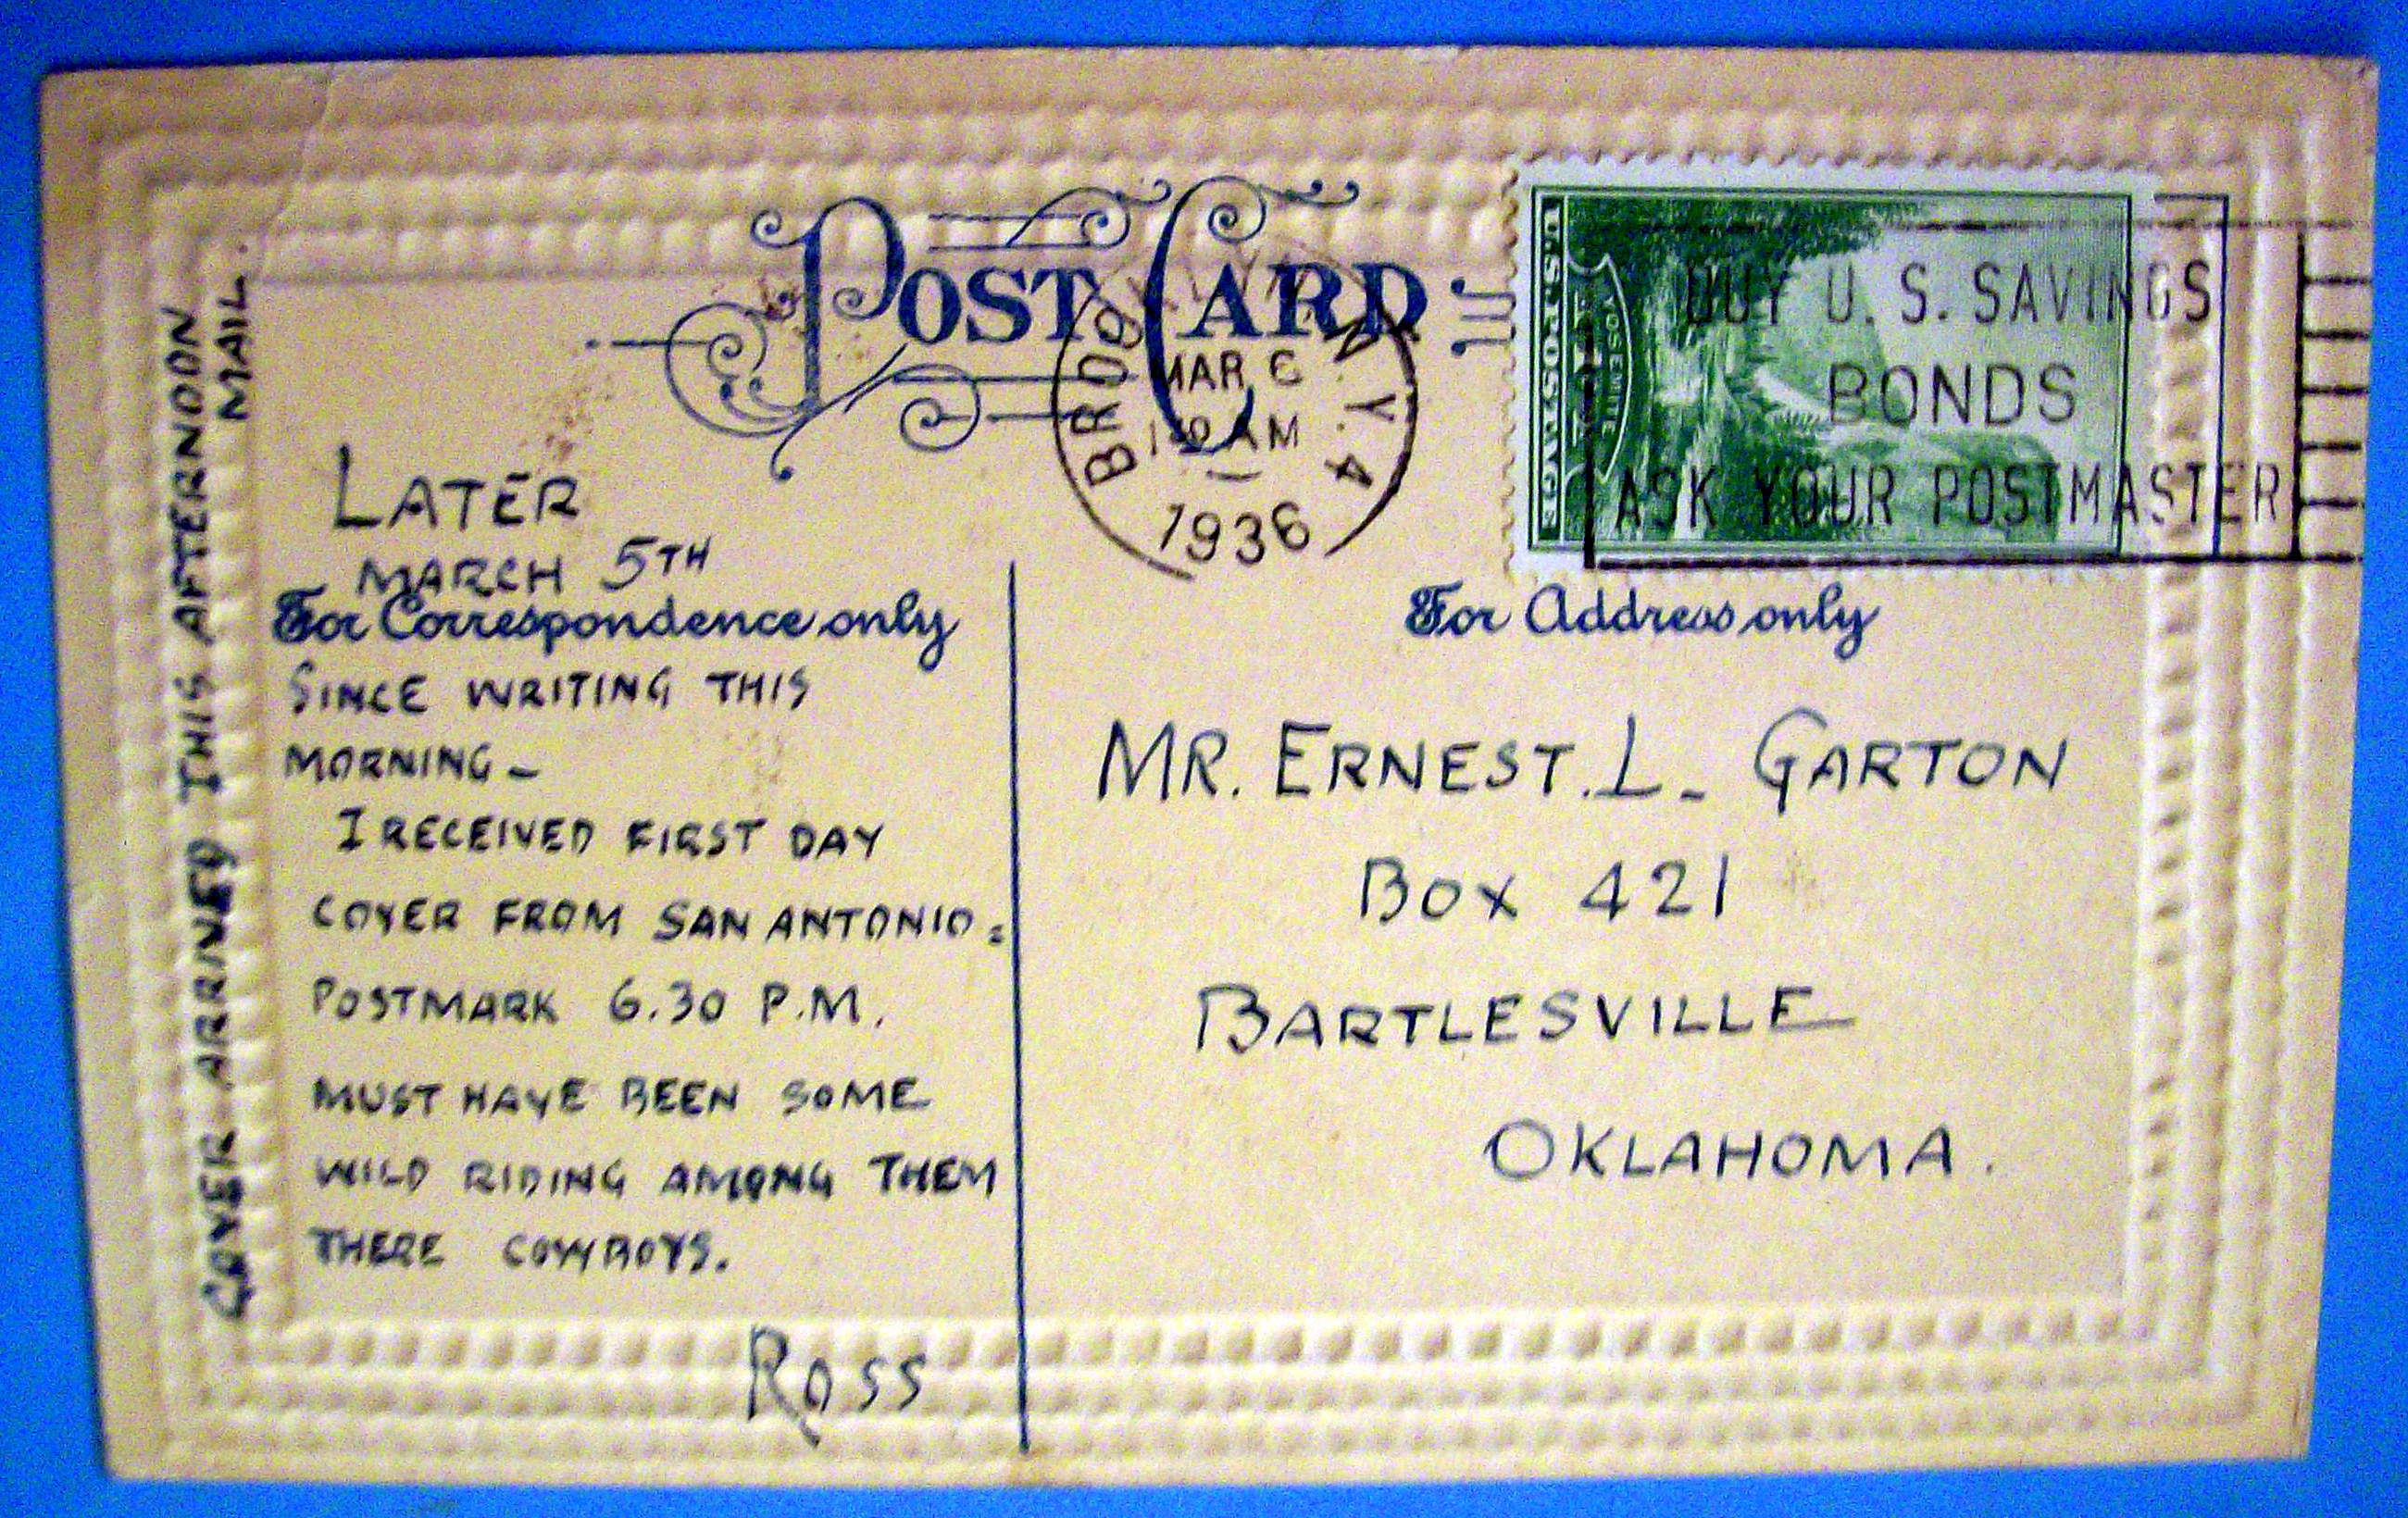 POST CARD
BROOKLYN N.Y. 4
MAR 6
AM
1936
U.S. POSTAGE
YOSEMITE
BUY U. S. SAVINGS
BONDS
ASK YOUR POSTMASTER
LATER
MARCH 5TH
For Correspondence only
SINCE WRITING THIS
MORNING –
I RECEIVED FIRST DAY
COVER FROM SAN ANTONIO =
POSTMARK 6.30 P.M.
MUST HAVE BEEN SOME
WILD RIDING AMONG THEM
THERE COWBOYS.
ROSS
COVER ARRIVED THIS AFTERNOON
MAIL.
For Address only
MR. ERNEST. L. GARTON
BOX 421
BARTLESVILLE
OKLAHOMA.